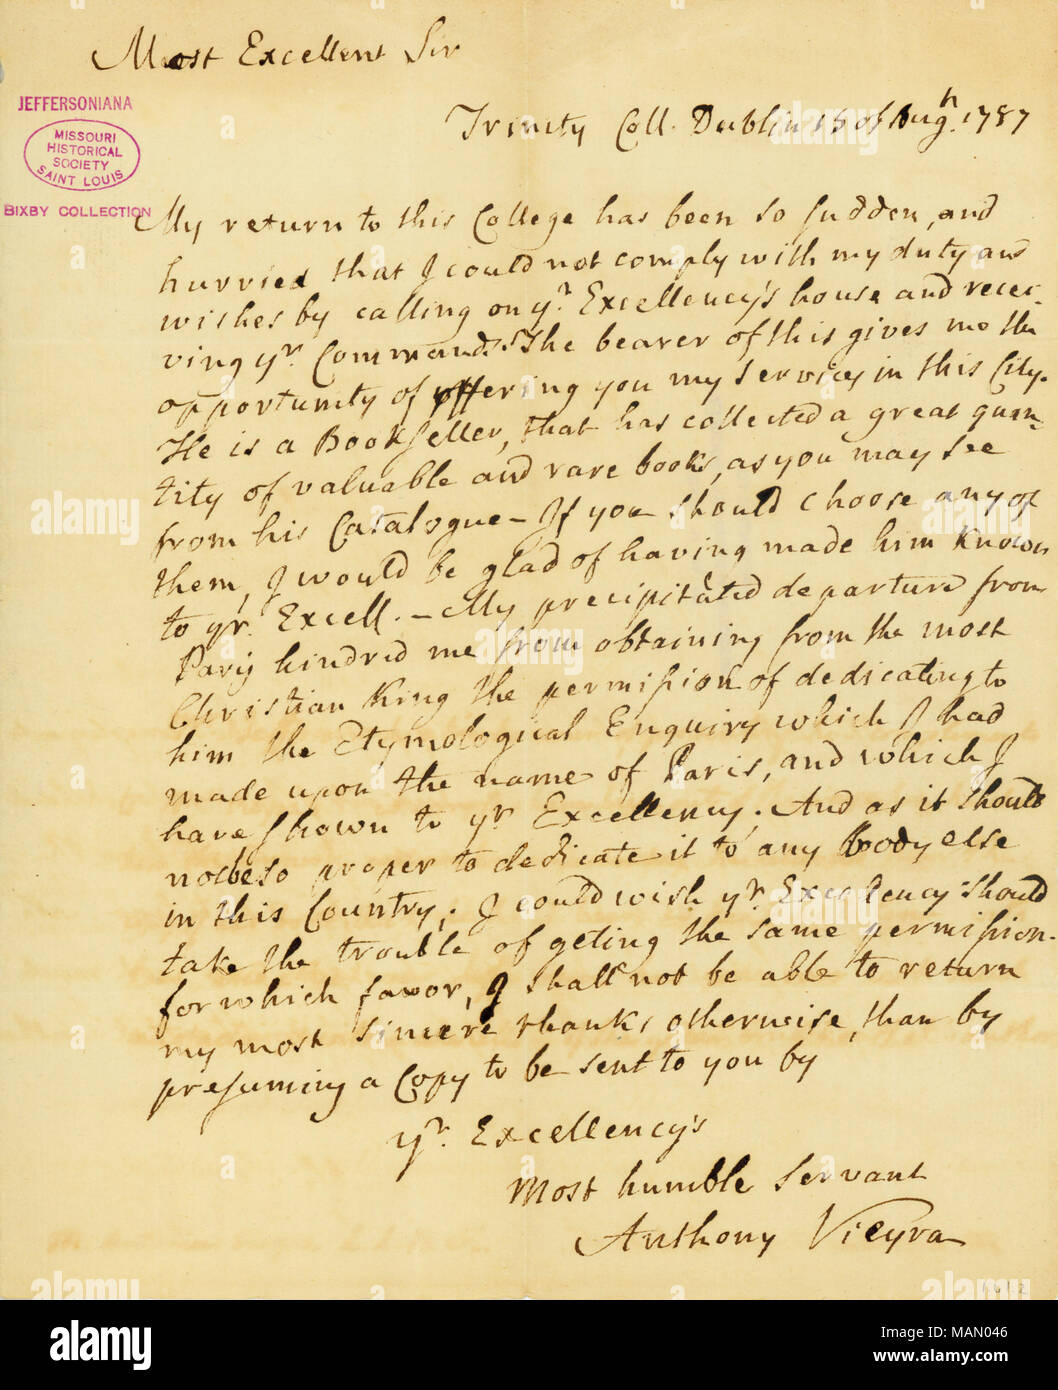 Most Excellent Sir
JEFFERSONIANA
MISSOURI
HISTORICAL
SOCIETY
SAINT LOUIS
BIXBY COLLECTION
Trinity Coll. Dublin 15 of Augh. 1787
My return to this College has been so sudden, and
hurried that I could not comply with my duty and
wishes by calling on yr. Excellency's house and recei-
ving yr. Commands. The bearer of this gives me the
opportunity of offering you my services in this City.
He is a Bookseller, that has collected a great quan-
tity of valuable and rare books, as you may see
from his Catalogue - If you should choose any of
them, I would be glad of having made him known
to yr. Excell. - My precipitated departure from
Paris hindred me from obtaining from the most
Christian King the permission of dedicating to
him the Etymological Enquiry which I had
made upon the name of Paris, and which I
have shown to yr Excellency. And as it should
not be so proper to dedicate it to any body else
in this Country, I could wish yr. Excellency should
take the trouble of geting the same permission.
for which favor, I shall not be able to return
my most sincere thanks otherwise, than by
presuming a Copy to be sent to you by
yr. Excellency's
Most humble Servant
Anthony Vieyra
alamy
Image ID: MAN046
www.alamy.com